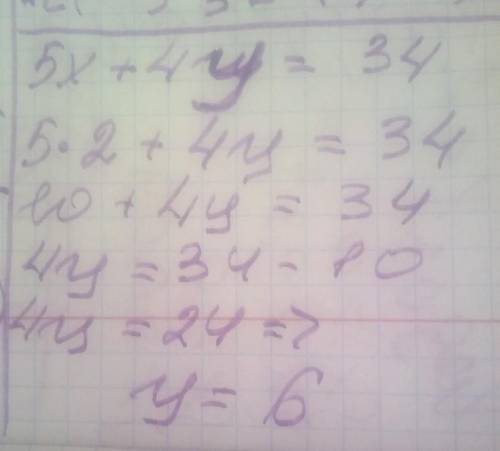 5x + 4y = 34
5·2 + 4y = 34
10 + 4y = 34
4y = 34 - 10
4y = 24 =>
y = 6